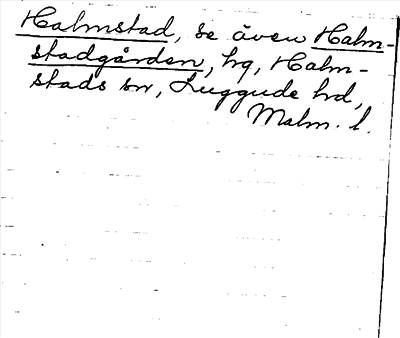 Halmstad, se även Halm-
stadgården, hg, Halm-
stads sn, Luggude hd,
Malm. l.